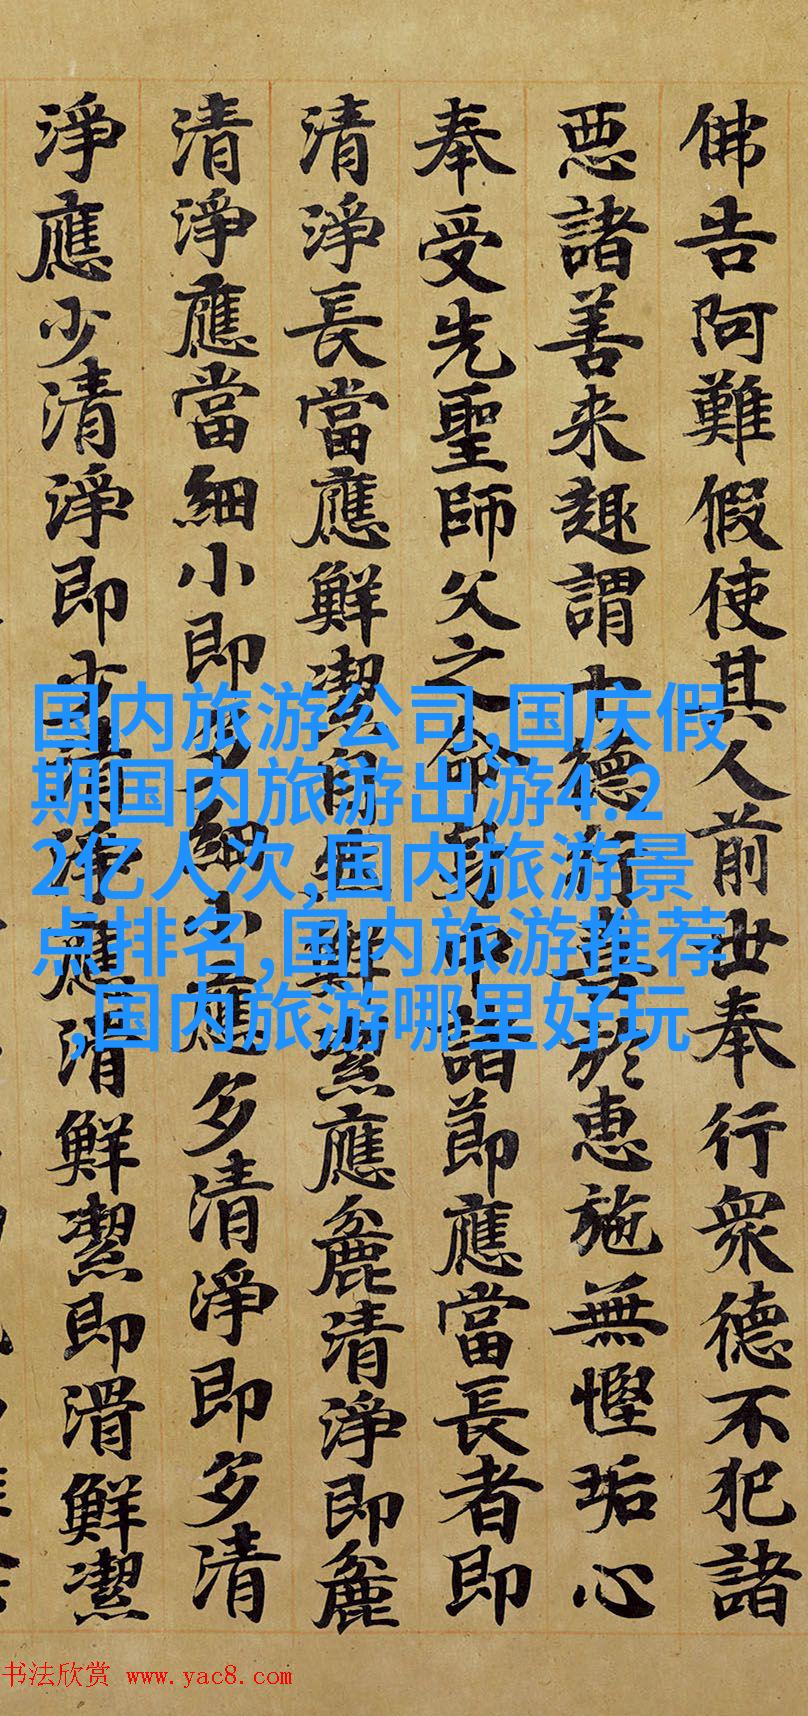 佛告阿難假使其人前世奉行衆德不犯諸
惡諸善来趣謂德行真於惠施無慳垢心
奉受先聖師父之命諸節應當長者即
清淨長當應鮮潔自潔應麁清淨即麁
清淨應當細小即多細小應多清淨即多清
淨應少清淨即少清淨應滑鮮潔即滑鮮潔
国内旅游公司,国庆假
期国内旅游出游4.2
2亿人次,国内旅游景
点排名,国内旅游推荐
,国内旅游哪里好玩
书法欣赏 www.yac8.com